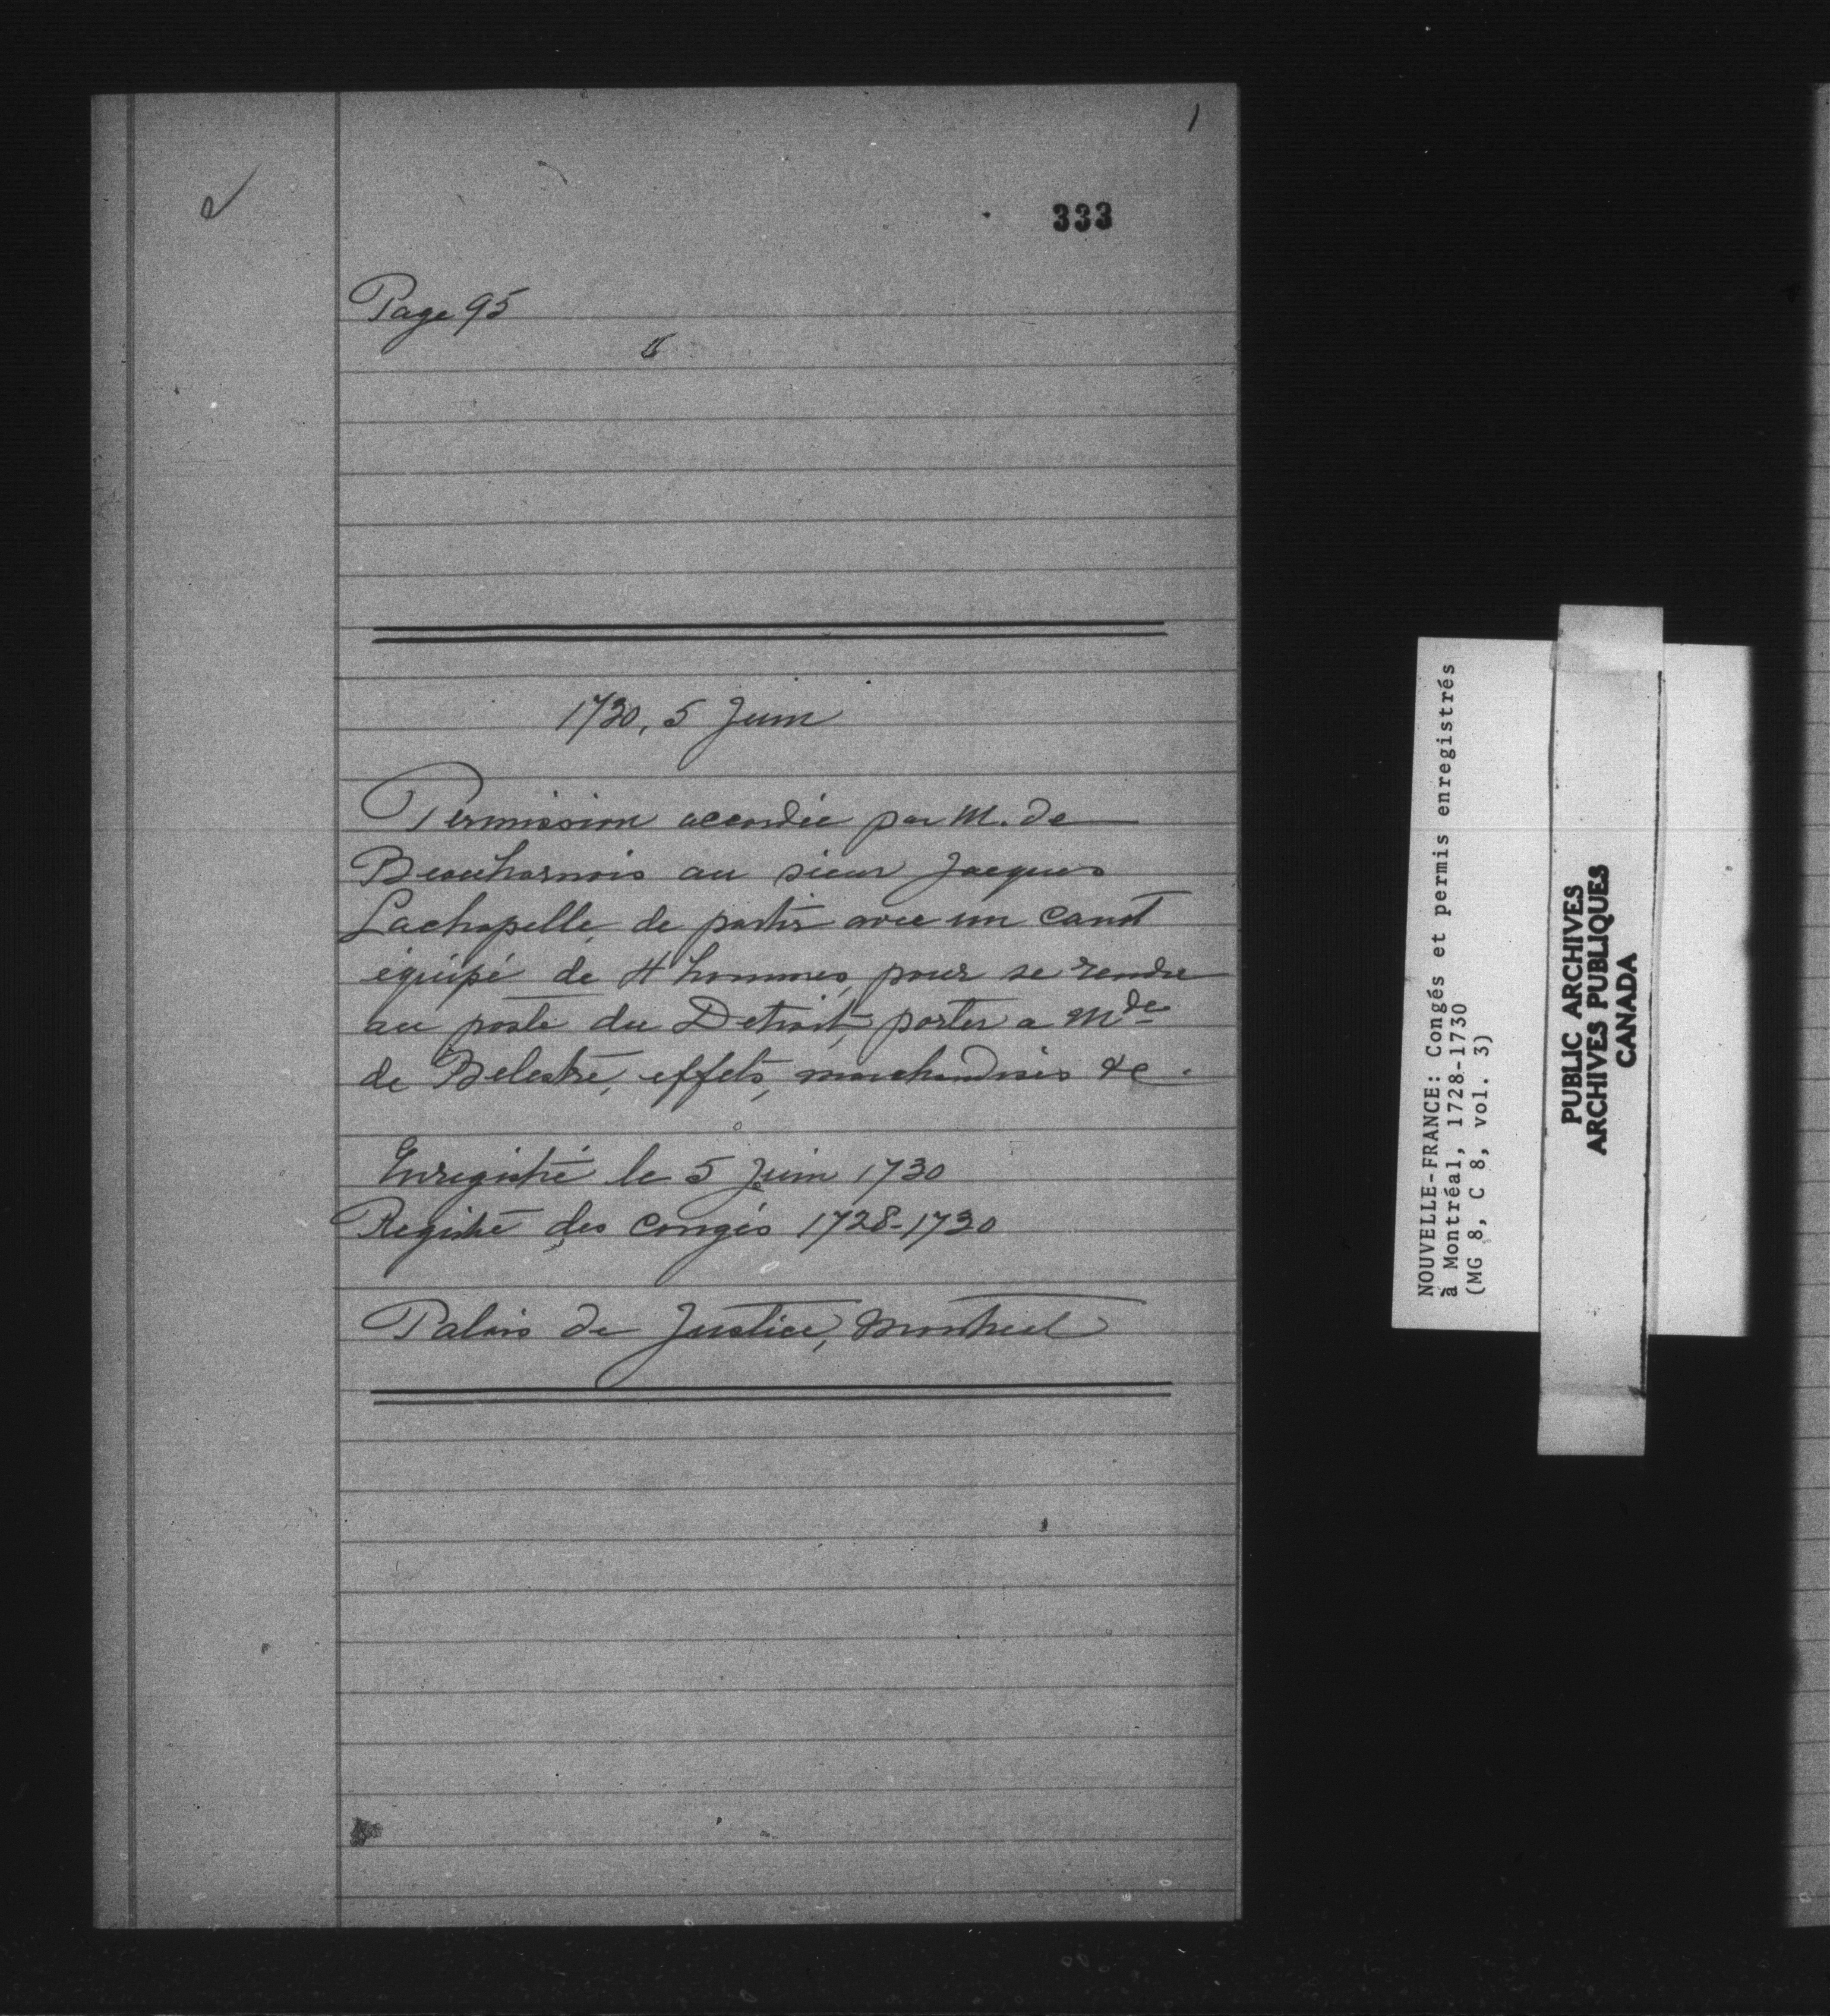 1
333
Page 95
1730, 5 Juin
Permission accordée par M. de
Beauharnois au sieur Jacques
Lachapelle, de partir avec un canot
équipé de 4 hommes, pour se rendre
au poste du Detroit, porter a Mde
de Belestre, effets, marchandises &c.
Enregistré le 5 Juin 1730
Registre des congés 1728-1730
Palais de Justice, Montreal
NOUVELLE-FRANCE: Congés et permis enregistrés
à Montréal, 1728-1730
(MG 8, C 8, vol. 3)
PUBLIC ARCHIVES
ARCHIVES PUBLIQUES
CANADA